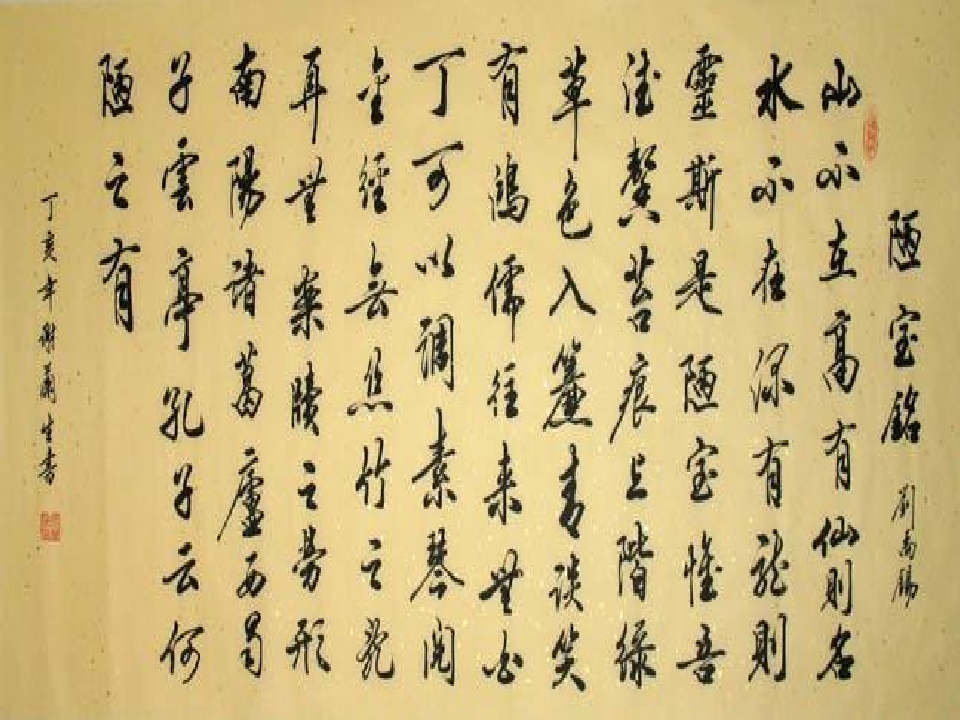 陋室銘 劉禹錫
山不在高有仙則名
水不在深有龍則
靈斯是陋室惟吾
德馨苔痕上階綠
草色入簾青談笑
有鴻儒往來無白
丁可以調素琴閱
金經無絲竹之亂
耳無案牘之勞形
南陽諸葛廬西蜀
子雲亭孔子云何
陋之有
丁亥年謝生書